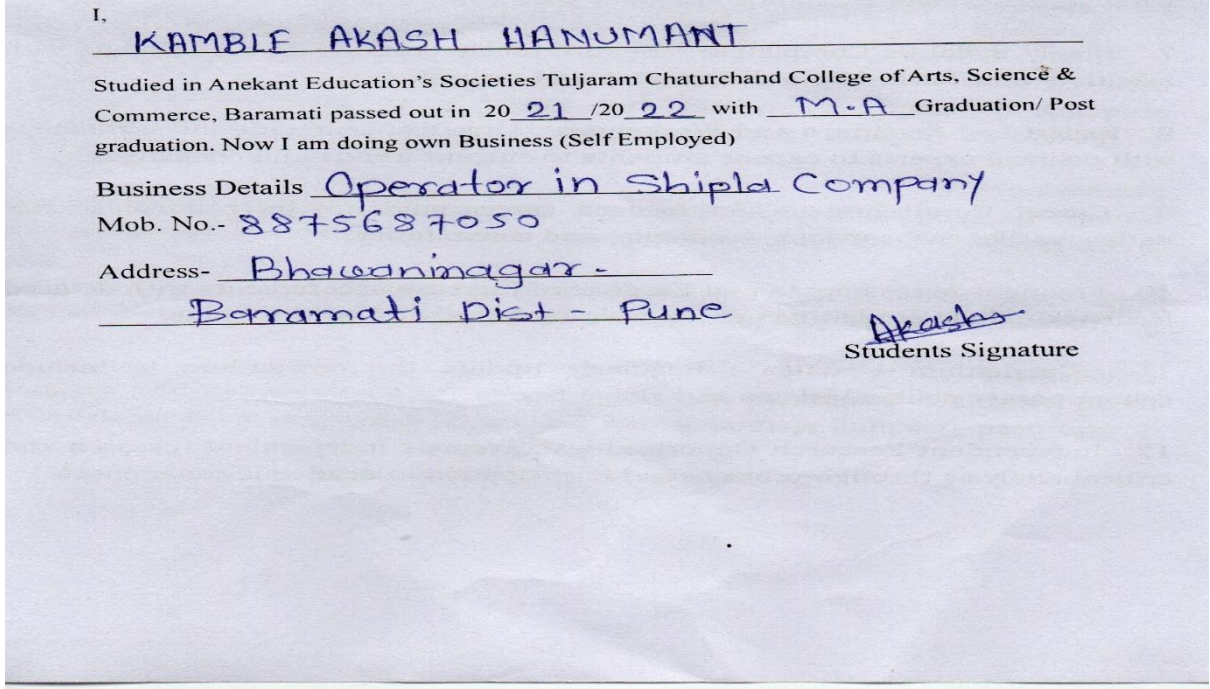 I,
KAMBLE AKASH HANUMANT
Studied in Anekant Education's Societies Tuljaram Chaturchand College of Arts, Science &
Commerce, Baramati passed out in 20 21 /20 22 with M.A Graduation/ Post
graduation. Now I am doing own Business (Self Employed)
Business Details Operator in Shipla Company
Mob. No.- 8875687050
Address- Bhawaninagar -
Baramati Dist - Pune
Akash
Students Signature